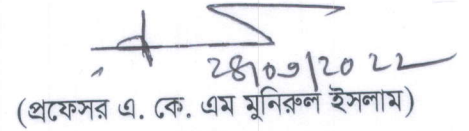 28/09/2022
(প্রফেসর এ. কে. এম মুনিরুল ইসলাম)